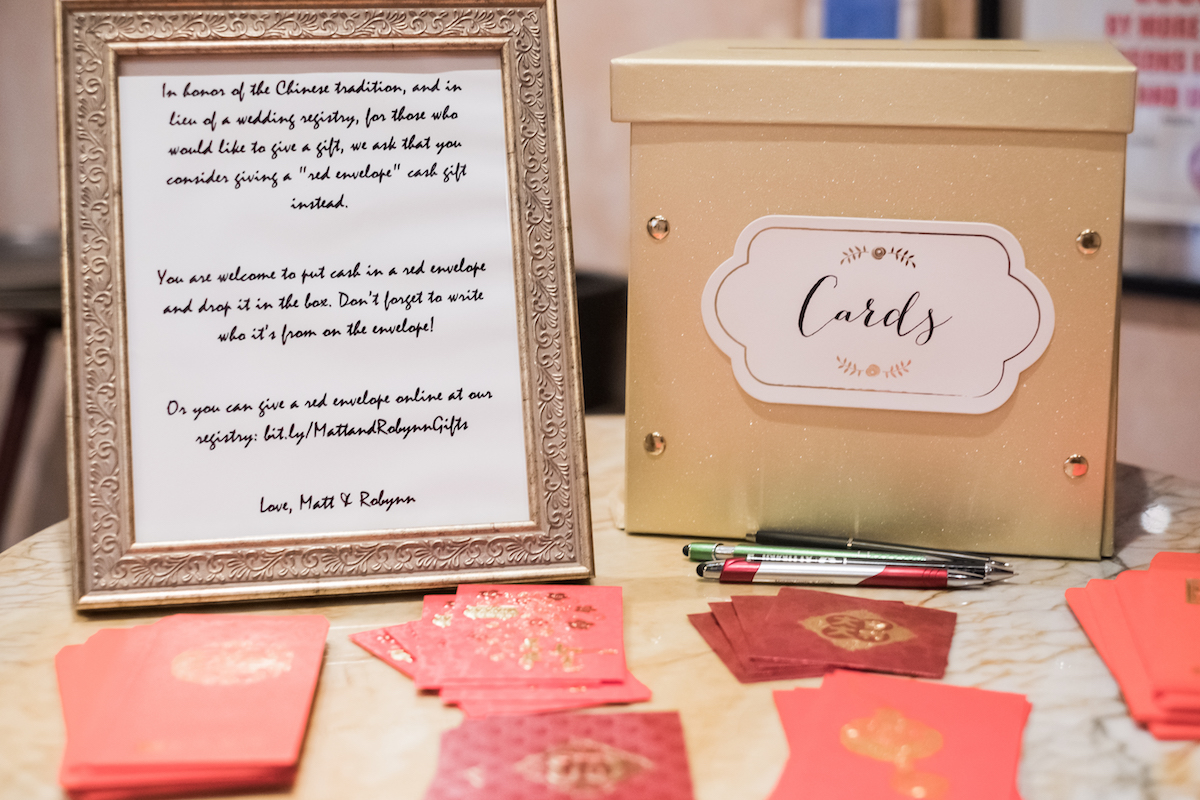 In honor of the Chinese tradition, and in
lieu of a wedding registry, for those who
would like to give a gift, we ask that you
consider giving a "red envelope" cash gift
instead.
You are welcome to put cash in a red envelope
and drop it in the box. Don't forget to write
who it's from on the envelope!
Or you can give a red envelope online at our
registry: bit.ly/MattandRobynnGifts
Love, Matt & Robynn
Cards
BY MORE
AND